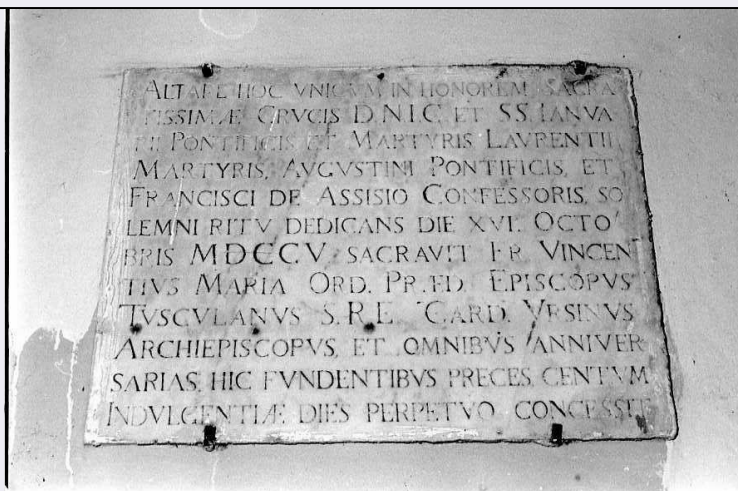 ALTARE HOC VNICVM IN HONOREM SACRA
TISSIMÆ CRVCIS D.N.I.C. ET SS. IANVA
RII PONTIFICIS ET MARTYRIS LAVRENTII
MARTYRIS, AVGVSTINI PONTIFICIS, ET
FRANCISCI DE ASSISIO CONFESSORIS, SO
LEMNI RITV DEDICANS DIE XVI. OCTO
BRIS MDCCV. SACRAVIT FR. VINCEN
TIVS MARIA ORD. PRÆD. EPISCOPVS
TVSCVLANVS S.R.E. CARD. VRSINVS
ARCHIEPISCOPVS, ET OMNIBVS ANNIVER
SARIAS HIC FVNDENTIBVS PRECES CENTVM
INDVLGENTIÆ DIES PERPETVO CONCESSIT